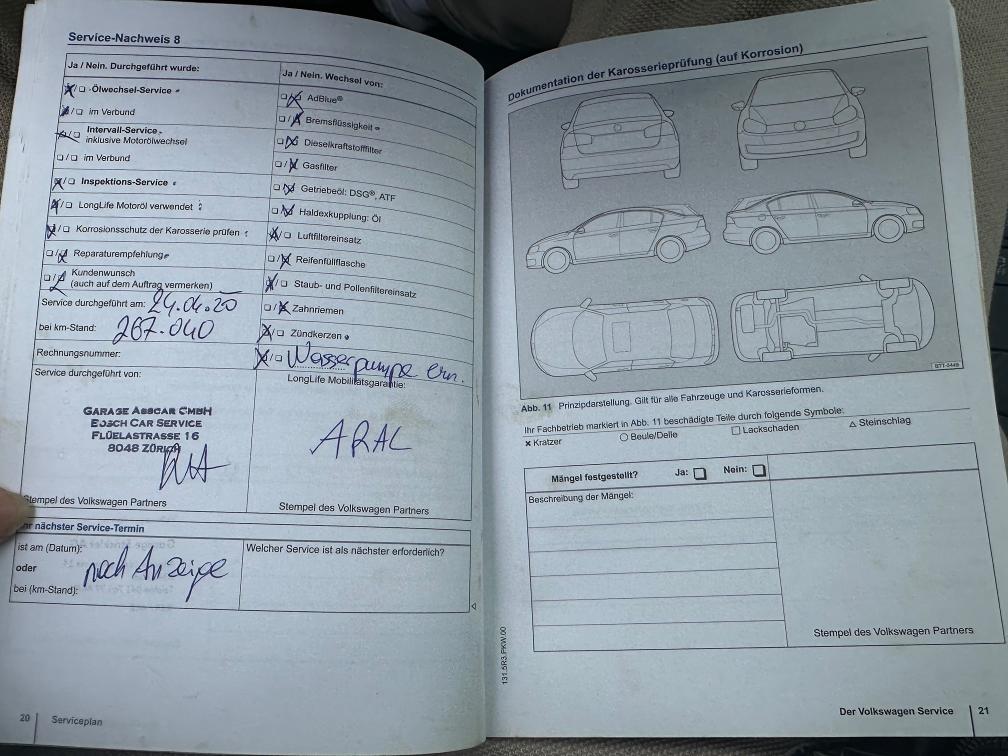 Service-Nachweis 8
Ja / Nein. Durchgeführt wurde:
☒/☐ Ölwechsel-Service
☒/☐ im Verbund
☒/☐ Intervall-Service
inklusive Motorölwechsel
☐/☐ im Verbund
☒/☐ Inspektions-Service
☒/☐ LongLife Motoröl verwendet
☒/☐ Korrosionsschutz der Karosserie prüfen
☐/☒ Reparaturempfehlung
☐/☒ Kundenwunsch
(auch auf dem Auftrag vermerken)
Service durchgeführt am: 24.04.20
bei km-Stand: 267.040
Rechnungsnummer:
Ja / Nein. Wechsel von:
☐/☒ AdBlue®
☐/☒ Bremsflüssigkeit
☐/☒ Dieselkraftstofffilter
☐/☒ Gasfilter
☐/☒ Getriebeöl: DSG®, ATF
☐/☒ Haldexkupplung: Öl
☒/☐ Luftfiltereinsatz
☐/☒ Reifenfüllflasche
☒/☐ Staub- und Pollenfiltereinsatz
☐/☒ Zahnriemen
☒/☐ Zündkerzen
☒/☐ Wasserpumpe ern.
Service durchgeführt von:
GARAGE ASSCAR GMBH
BOSCH CAR SERVICE
FLÜELASTRASSE 16
8048 ZÜRICH
Stempel des Volkswagen Partners
LongLife Mobilitätsgarantie:
ARAL
Stempel des Volkswagen Partners
Ihr nächster Service-Termin
ist am (Datum):
oder
bei (km-Stand):
nach Anzeige
Welcher Service ist als nächster erforderlich?
20 Serviceplan
Dokumentation der Karosserieprüfung (auf Korrosion)
B7T-0449
Abb. 11 Prinzipdarstellung. Gilt für alle Fahrzeuge und Karosserieformen.
Ihr Fachbetrieb markiert in Abb. 11 beschädigte Teile durch folgende Symbole:
× Kratzer ○ Beule/Delle □ Lackschaden △ Steinschlag
Mängel festgestellt? Ja: ☐ Nein: ☐
Beschreibung der Mängel:
Stempel des Volkswagen Partners
131.5R3.PKW.00
Der Volkswagen Service 21